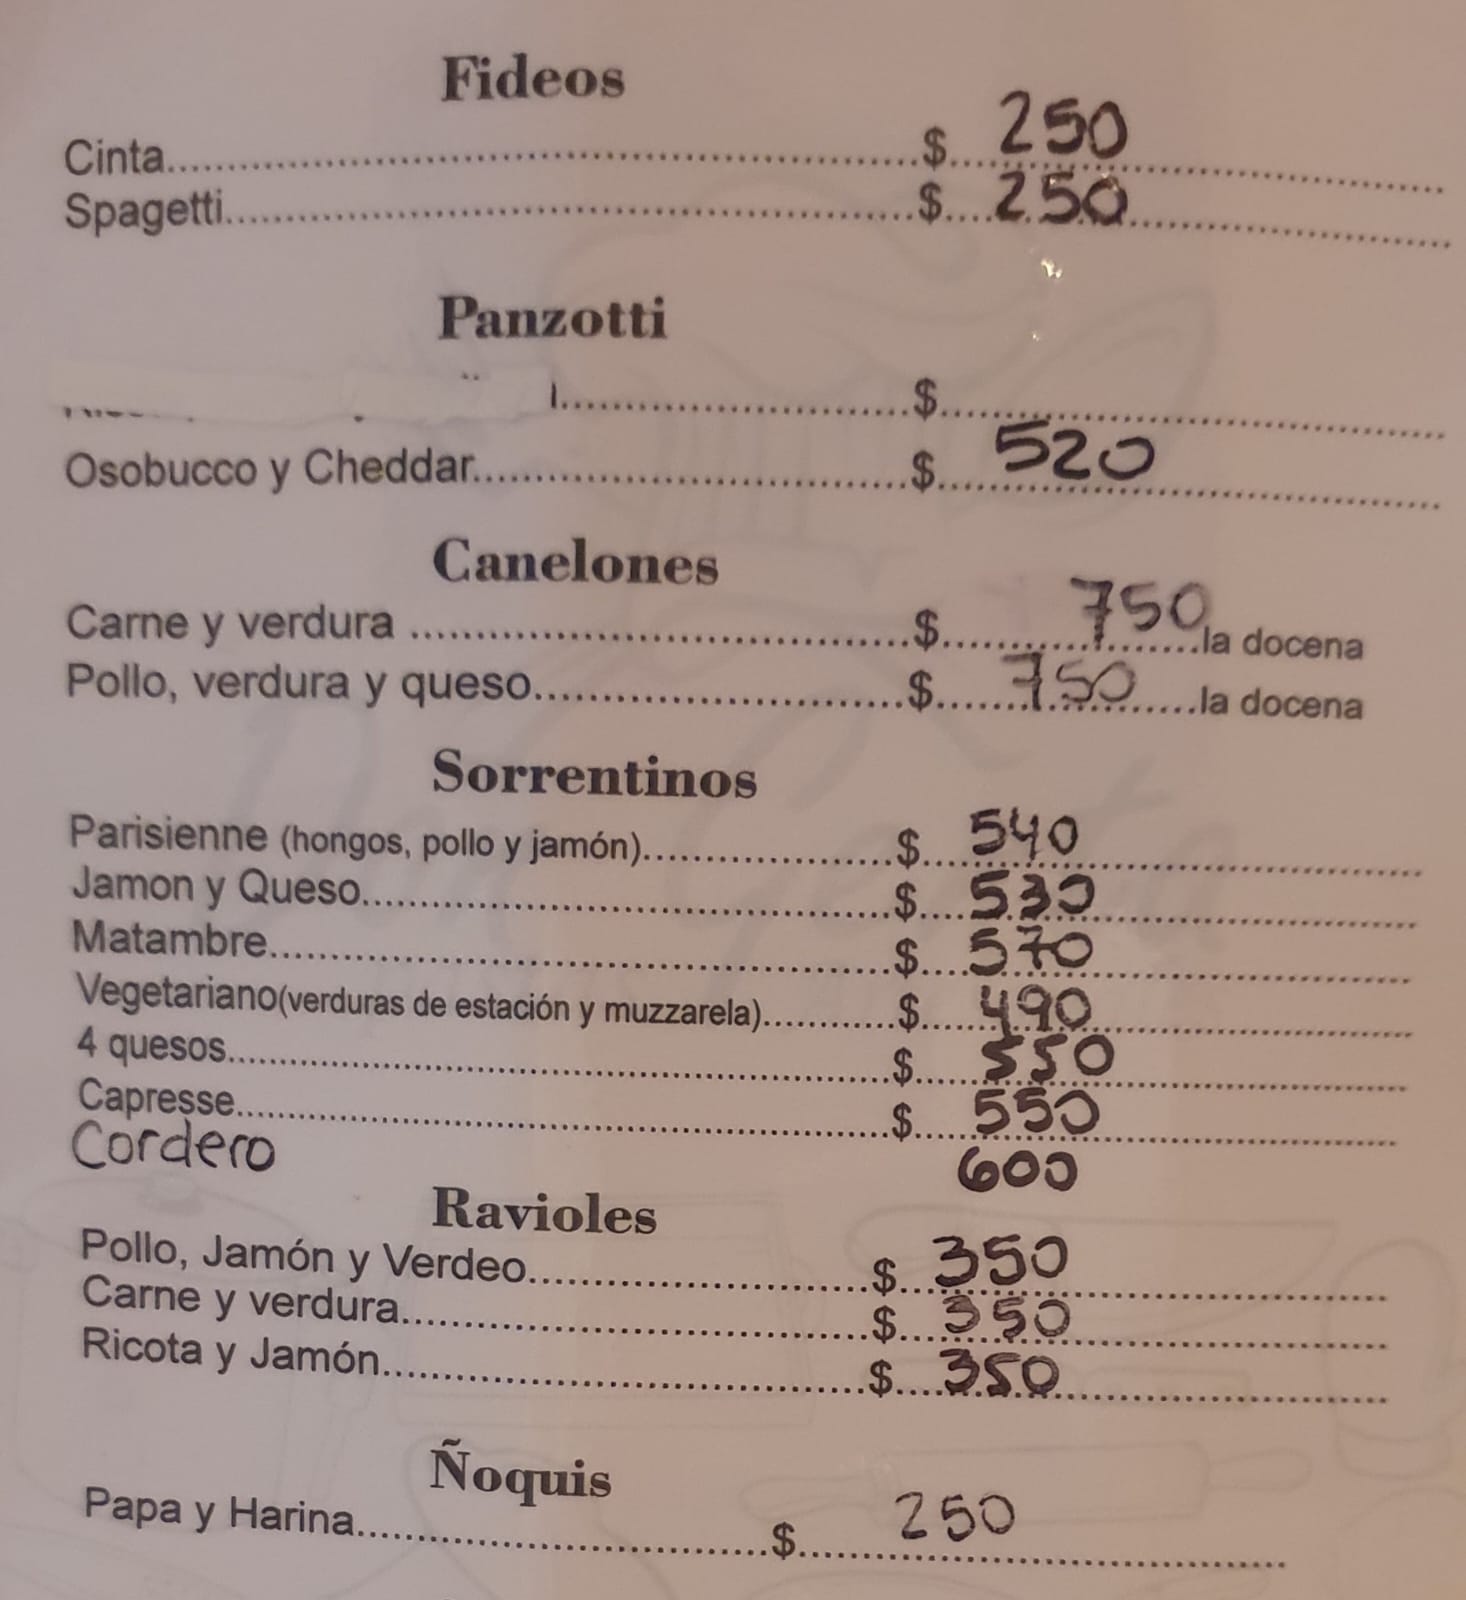 Fideos
Cinta....................$....250
Spagetti....................$....250
Panzotti
....................$....................
Osobucco y Cheddar....................$....520
Canelones
Carne y verdura ....................$....750....la docena
Pollo, verdura y queso....................$....750....la docena
Sorrentinos
Parisienne (hongos, pollo y jamón)....................$....540
Jamon y Queso....................$....530
Matambre....................$....570
Vegetariano(verduras de estación y muzzarela)............$....490
4 quesos....................$....550
Capresse....................$....550
Cordero 600
Ravioles
Pollo, Jamón y Verdeo....................$....350
Carne y verdura....................$....350
Ricota y Jamón....................$....350
Ñoquis
Papa y Harina....................$....250